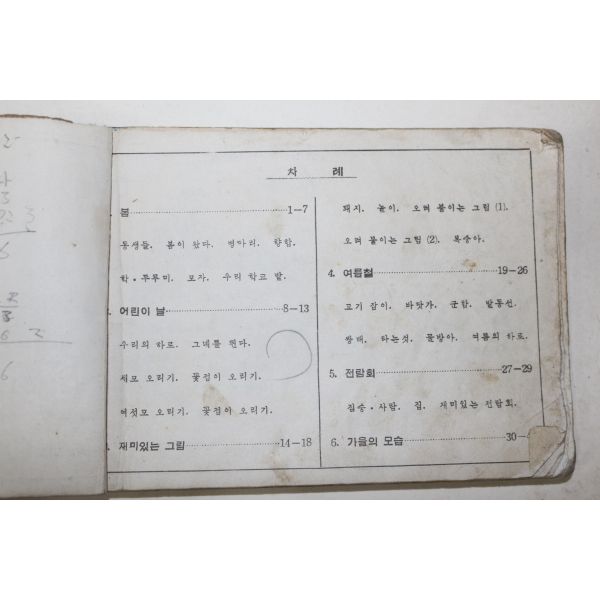 차 례
봄 1—7
동생들. 봄이 왔다. 병아리. 향합.
학·두루미. 모자. 우리 학교 밭.
어린이 날 8—13
우리의 하로. 그네를 뛴다.
세모 오리기. 꽃접이 오리기.
여섯모 오리기. 꽃접이 오리기.
재미있는 그림 14—18
돼지. 놀이. 오려 붙이는 그림 (1).
오려 붙이는 그림 (2). 복숭아.
4. 여름철 19—26
고기 잡이. 바닷가. 군함. 발동선.
타는것. 물방아. 여름의 하로.
5. 전람회 27—29
짐승·사람. 집. 재미있는 전람회.
6. 가을의 모습 30—